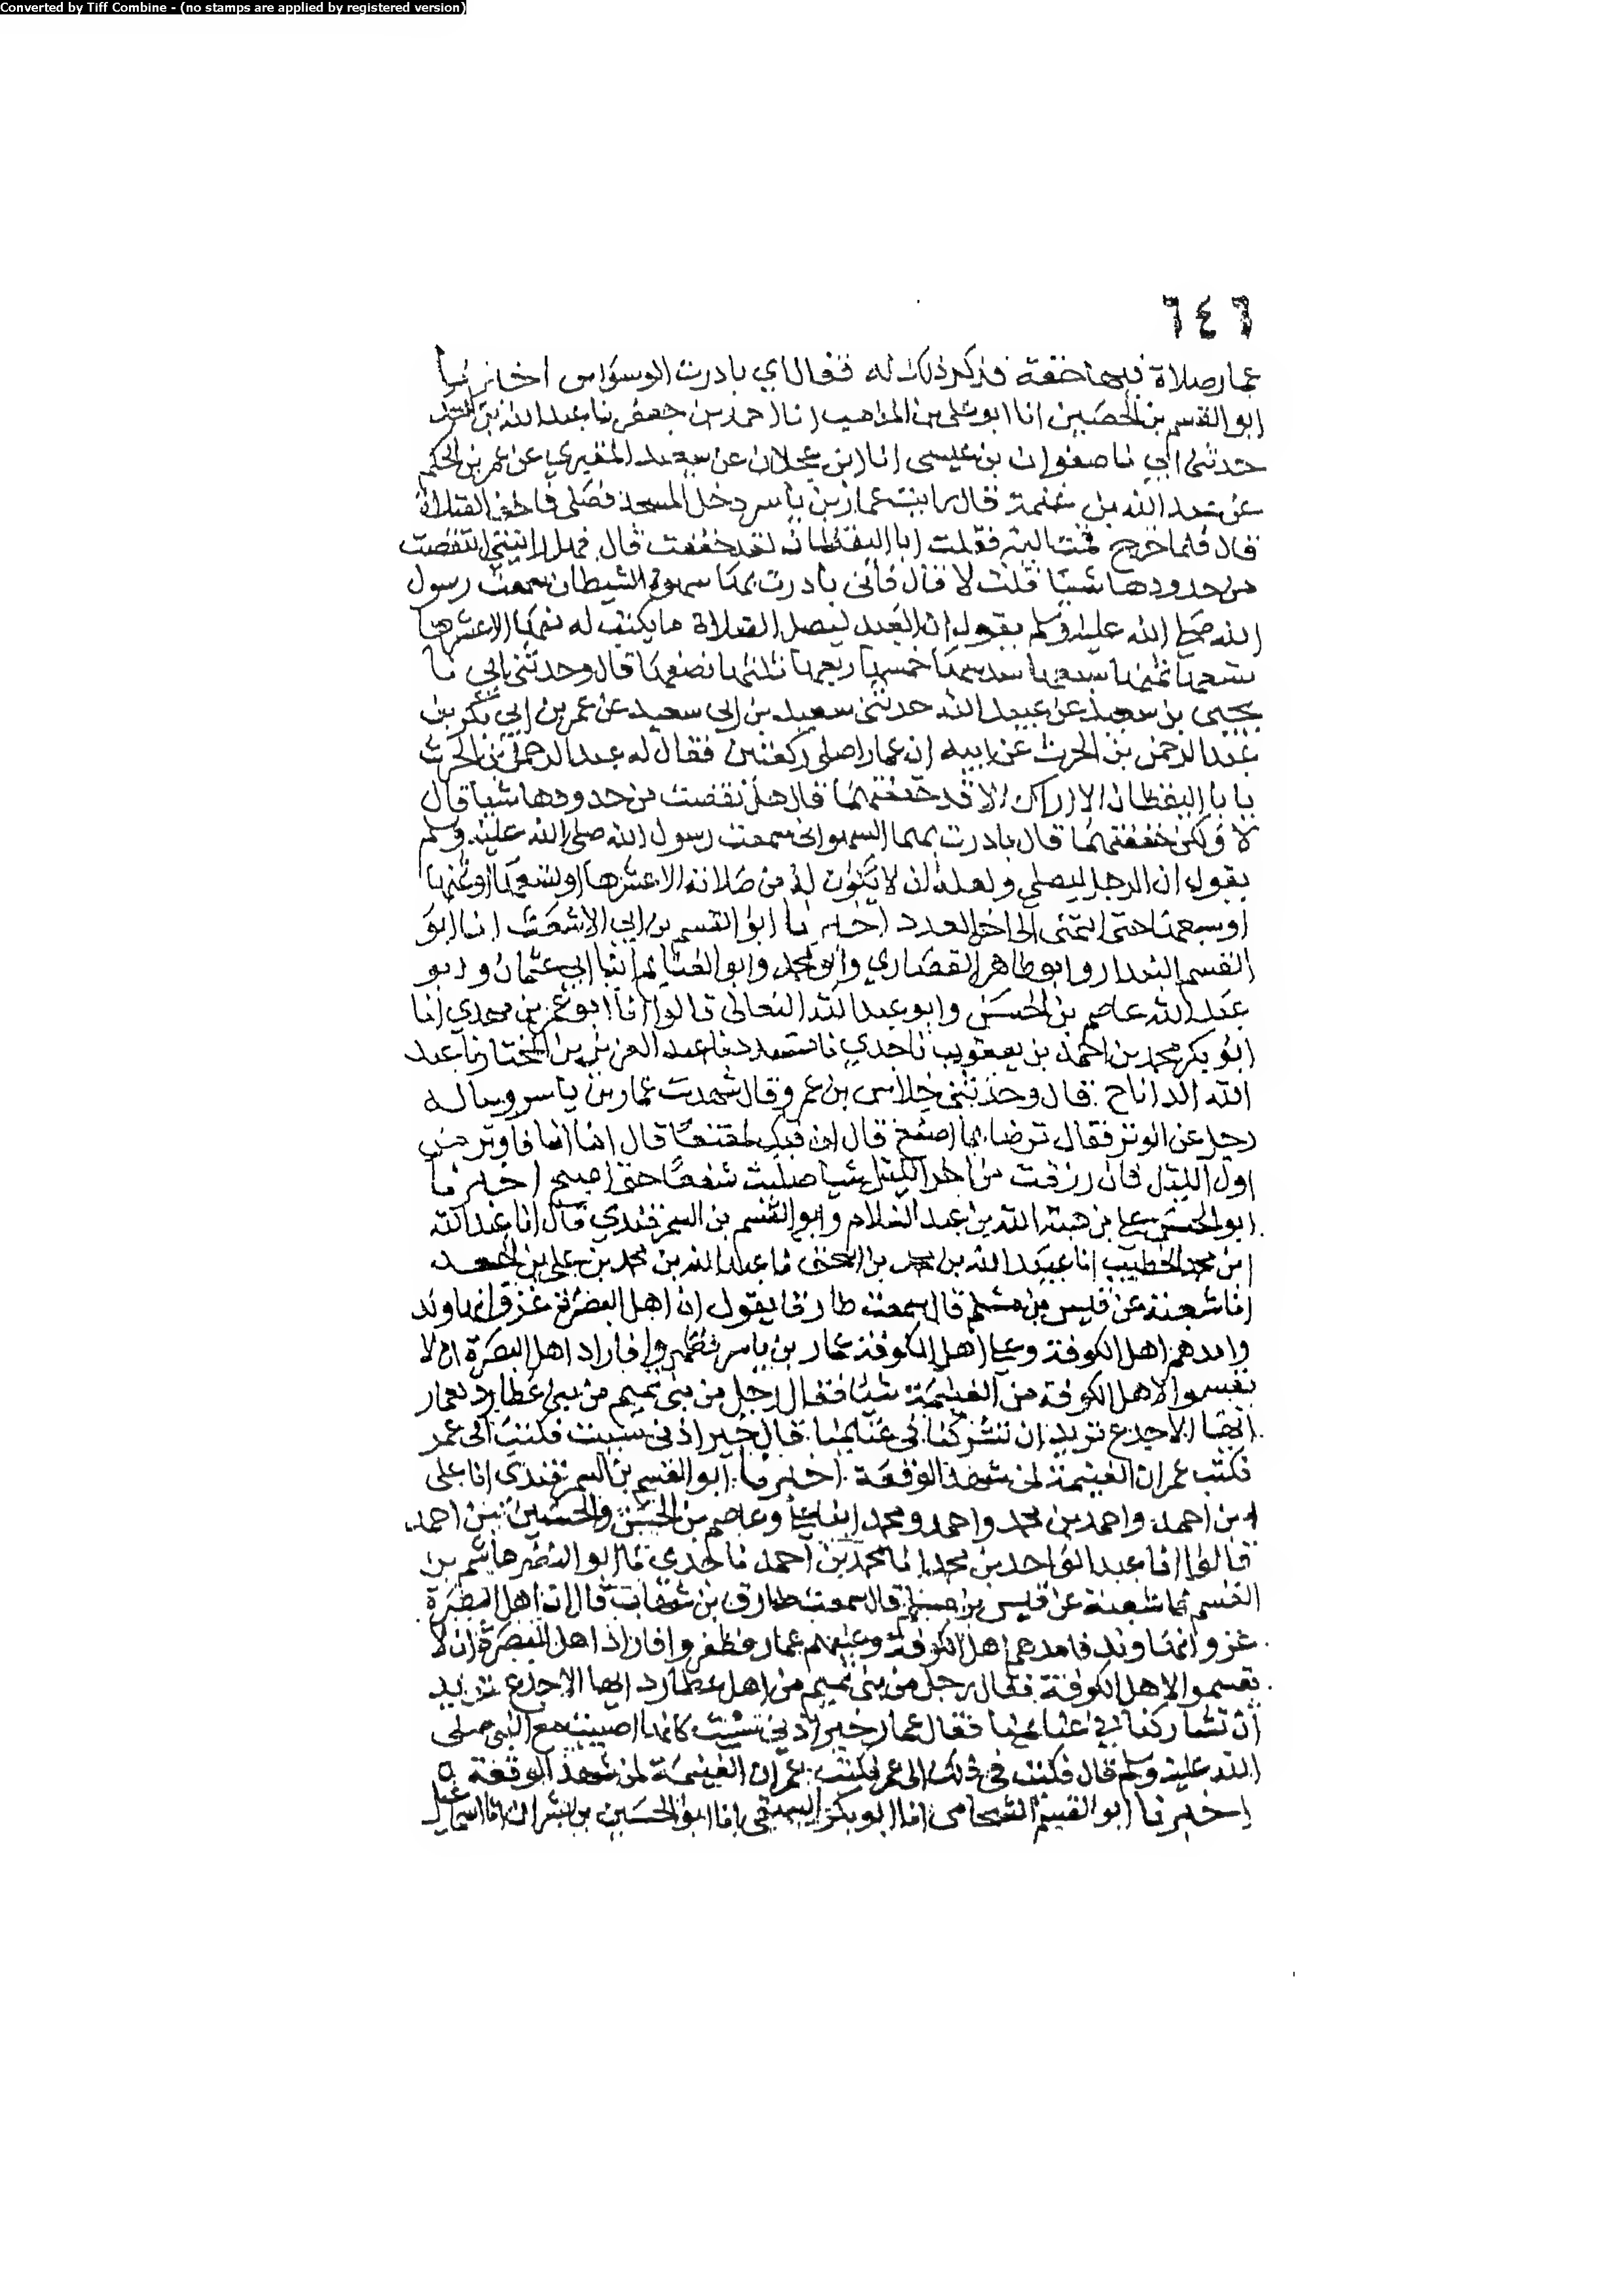 Converted by Tiff Combine - (no stamps are applied by registered version)
٦٤٦
عمار صلاة فيها خفة فذكر ذلك له فقال اي بادرت الوسواس اخبرنا
ابو القسم بن الحصين انا ابو علي بن المذهب انا احمد بن جعفر نا عبد الله بن احمد
حدثني ابي نا صفوان بن عيسى انا ابن عجلان عن سعيد المقبري عن عمر بن الحكم
عن عبد الله بن غنمة قال رايت عمار بن ياسر دخل المسجد فصلى فاخف الصلاة
قال فلما خرج قمت اليه فقلت ابا اليقظان لقد خففت قال فهل رايتني انتقصت
من حدودها شيا قلت لا قال فاني بادرت بها سهوة الشيطان سمعت رسول
الله صلى الله عليه وسلم يقول ان العبد ليصل الصلاة ما يكتب له منها الا عشرها
تسعها ثمنها سبعها سدسها خمسها ربعها ثلثها نصفها قال وحدثني ابي نا
يحيى بن سعيد عن عبيد الله حدثني سعيد بن ابي سعيد عن عمر بن ابي بكر بن
عبد الرحمن بن الحرث عن ابيه ان عمارا صلى ركعتين فقال له عبد الرحمن بن الحرث
يا با اليقظان لا اراك الا قد خففتهما قال هل نقصت من حدودها شيا قال
لا ولكن خففتهما قال بادرت بهما السهو اني سمعت رسول الله صلى الله عليه وسلم
يقول ان الرجل ليصلي ولعله ان لا يكون له من صلاته الا عشرها او تسعها او ثمنها
او سبعها حتى انتهى الى اخر العدد اخبرنا ابو القسم بن ابي الاشعث انا ابو
القسم البندار وابو طاهر القصاري وابو محمد وابو الغنايم ابنا ابي عثمان وابو
عبد الله عاصم بن الحسن وابو عبد الله النعالي قالوا انا ابو عمر بن مهدي انا
ابو بكر محمد بن احمد بن يعقوب نا جدي نا مسدد نا عبد العزيز بن المختار نا عبد
الله الداناج قال وحدثني خلاس بن عمرو قال شهدت عمار بن ياسر وساله
رجل عن الوتر فقال ترضا بما اصنع قال ان فيك لمقنعا قال اما انا فاوتر من
اول الليل فان رزقت من اخر الليل شيا صليت شفعا حتى اصبح اخبرنا
ابو الحسن علي بن هبة الله بن عبد السلام وابو القسم بن السمرقندي قال انا عبد الله
ابن محمد الخطيب انا عبيد الله بن محمد بن اسحق نا عبد الله بن محمد بن علي بن الجعد
انا شعبة عن قيس بن مسلم قال سمعت طارقا يقول ان اهل البصرة غزوا نهاوند
وامدهم اهل الكوفة وعلى اهل الكوفة عمار بن ياسر فظهروا فاراد اهل البصرة ان لا
يقسموا لاهل الكوفة من الغنيمة شيا فقال رجل من بني تميم من بني عطارد لعمار
ايها الاجدع تريد ان تشركنا في غنايمنا قال خير اذني سببت فكتب الى عمر
فكتب عمر ان الغنيمة لمن شهد الوقعة اخبرنا ابو القسم بن السمرقندي انا علي
ابن احمد واحمد بن محمد واحمد ومحمد ابنا علي وعاصم بن الحسن والحسين بن احمد
قالوا انا عبد الواحد بن محمد انا محمد بن احمد نا جدي نا ابو النضر هاشم بن
القسم نا شعبة عن قيس بن مسلم قال سمعت طارق بن شهاب قال ان اهل البصرة
غزوا نهاوند فامدهم اهل الكوفة وعليهم عمار فظفروا فاراد اهل البصرة ان لا
يقسموا لاهل الكوفة فقال رجل من بني تميم من اهل عطارد ايها الاجدع تريد
ان تشاركنا في غنائمنا فقال عمار خير اذني سببت كانها اصيبت مع النبي صلى
الله عليه وسلم قال فكتب في ذلك الى عمر فكتب عمر ان الغنيمة لمن شهد الوقعة ه
اخبرنا ابو القسم الشحامي انا ابو بكر البيهقي انا ابو الحسين بن بشران انا اسماعيل